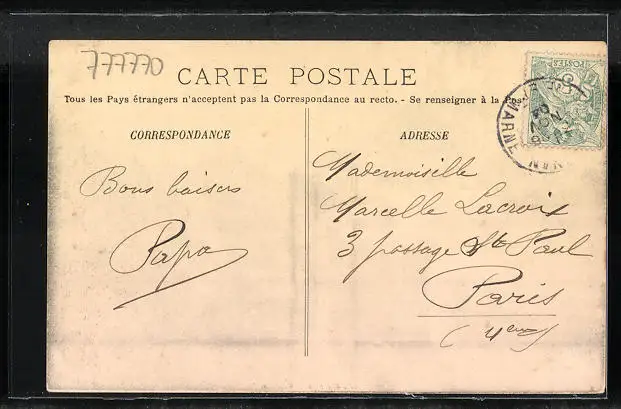 777770
CARTE POSTALE
Tous les Pays étrangers n'acceptent pas la Correspondance au recto. - Se renseigner à la Poste
CORRESPONDANCE
ADRESSE
Bons baisers
Papa
Mademoiselle
Marcelle Lacroix
3 passage St Paul
Paris
(4eme)
POSTES
MARNE